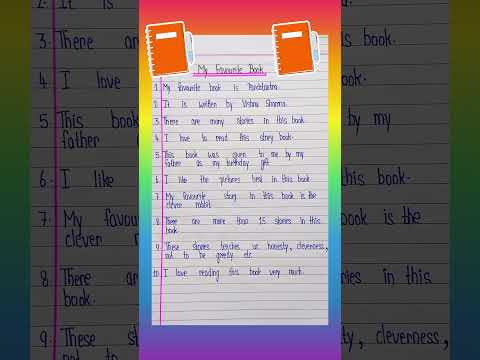 My Favourite Book
1. My favourite book is Panchtantra.
2. It is written by Vishnu Sharma.
3. There are many stories in this book.
4. I love to read this story book.
5. This book was given to me by my
father as my birthday gift
6. I like the pictures best in this book.
7. My favourite story in this book is the
clever rabbit.
8. There are more than 15 stories in this
book.
9. These stories teaches us honesty, cleverness,
not to be greedy etc.
10. I love reading this book very much.